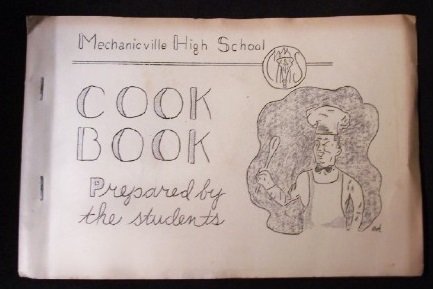 Mechanicville High School
COOK
BOOK
Prepared by
the students